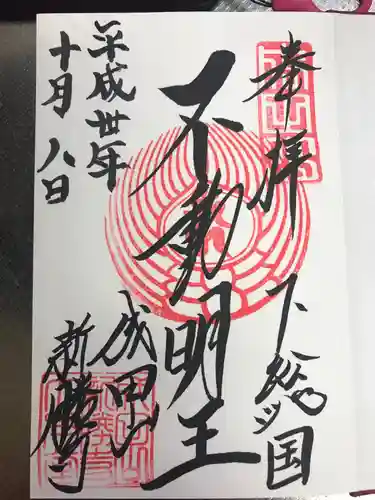 奉拝
下総ノ国
不動明王
成田山
新勝寺
平成卅年
十月八日